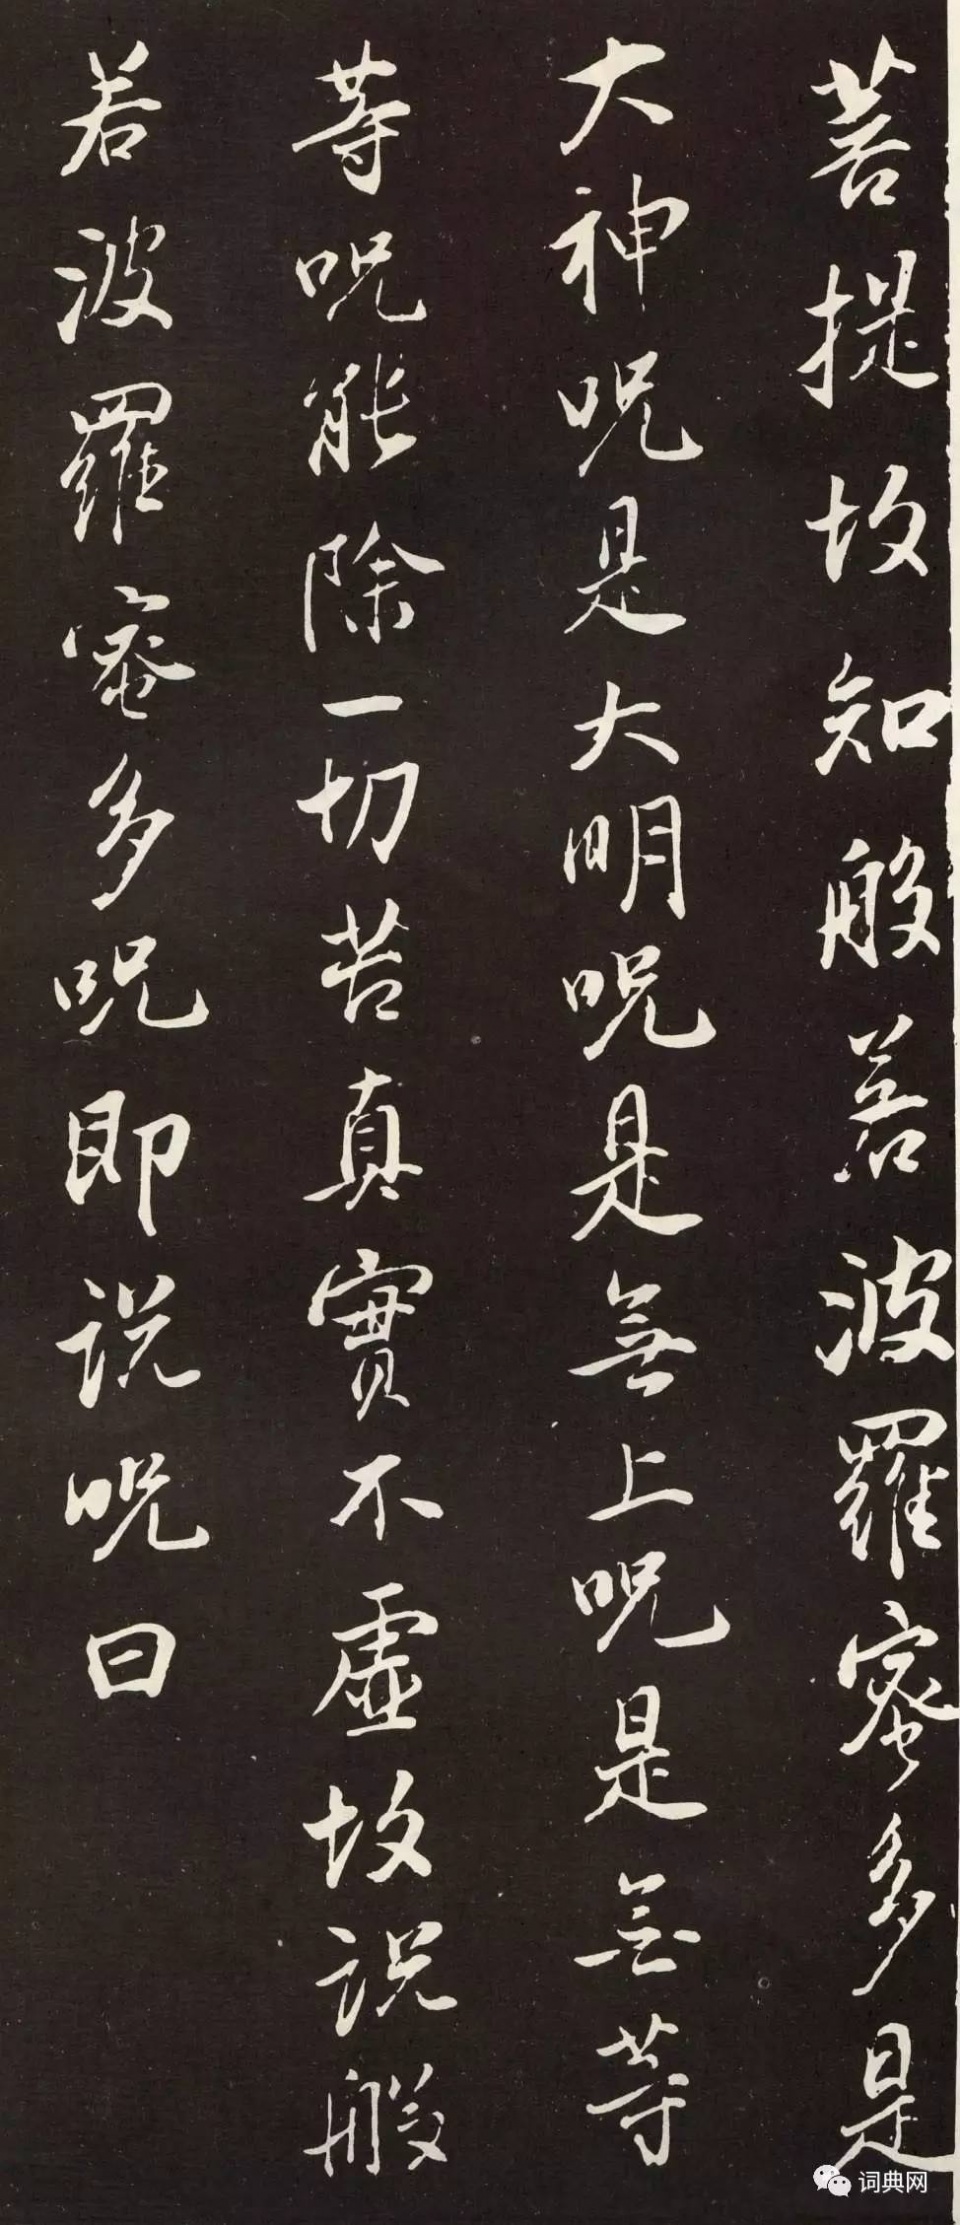 菩提故知般若波羅蜜多是
大神呪是大明呪是無上呪是無等
等呪能除一切苦真實不虛故説般
若波羅蜜多呪即説呪曰
词典网